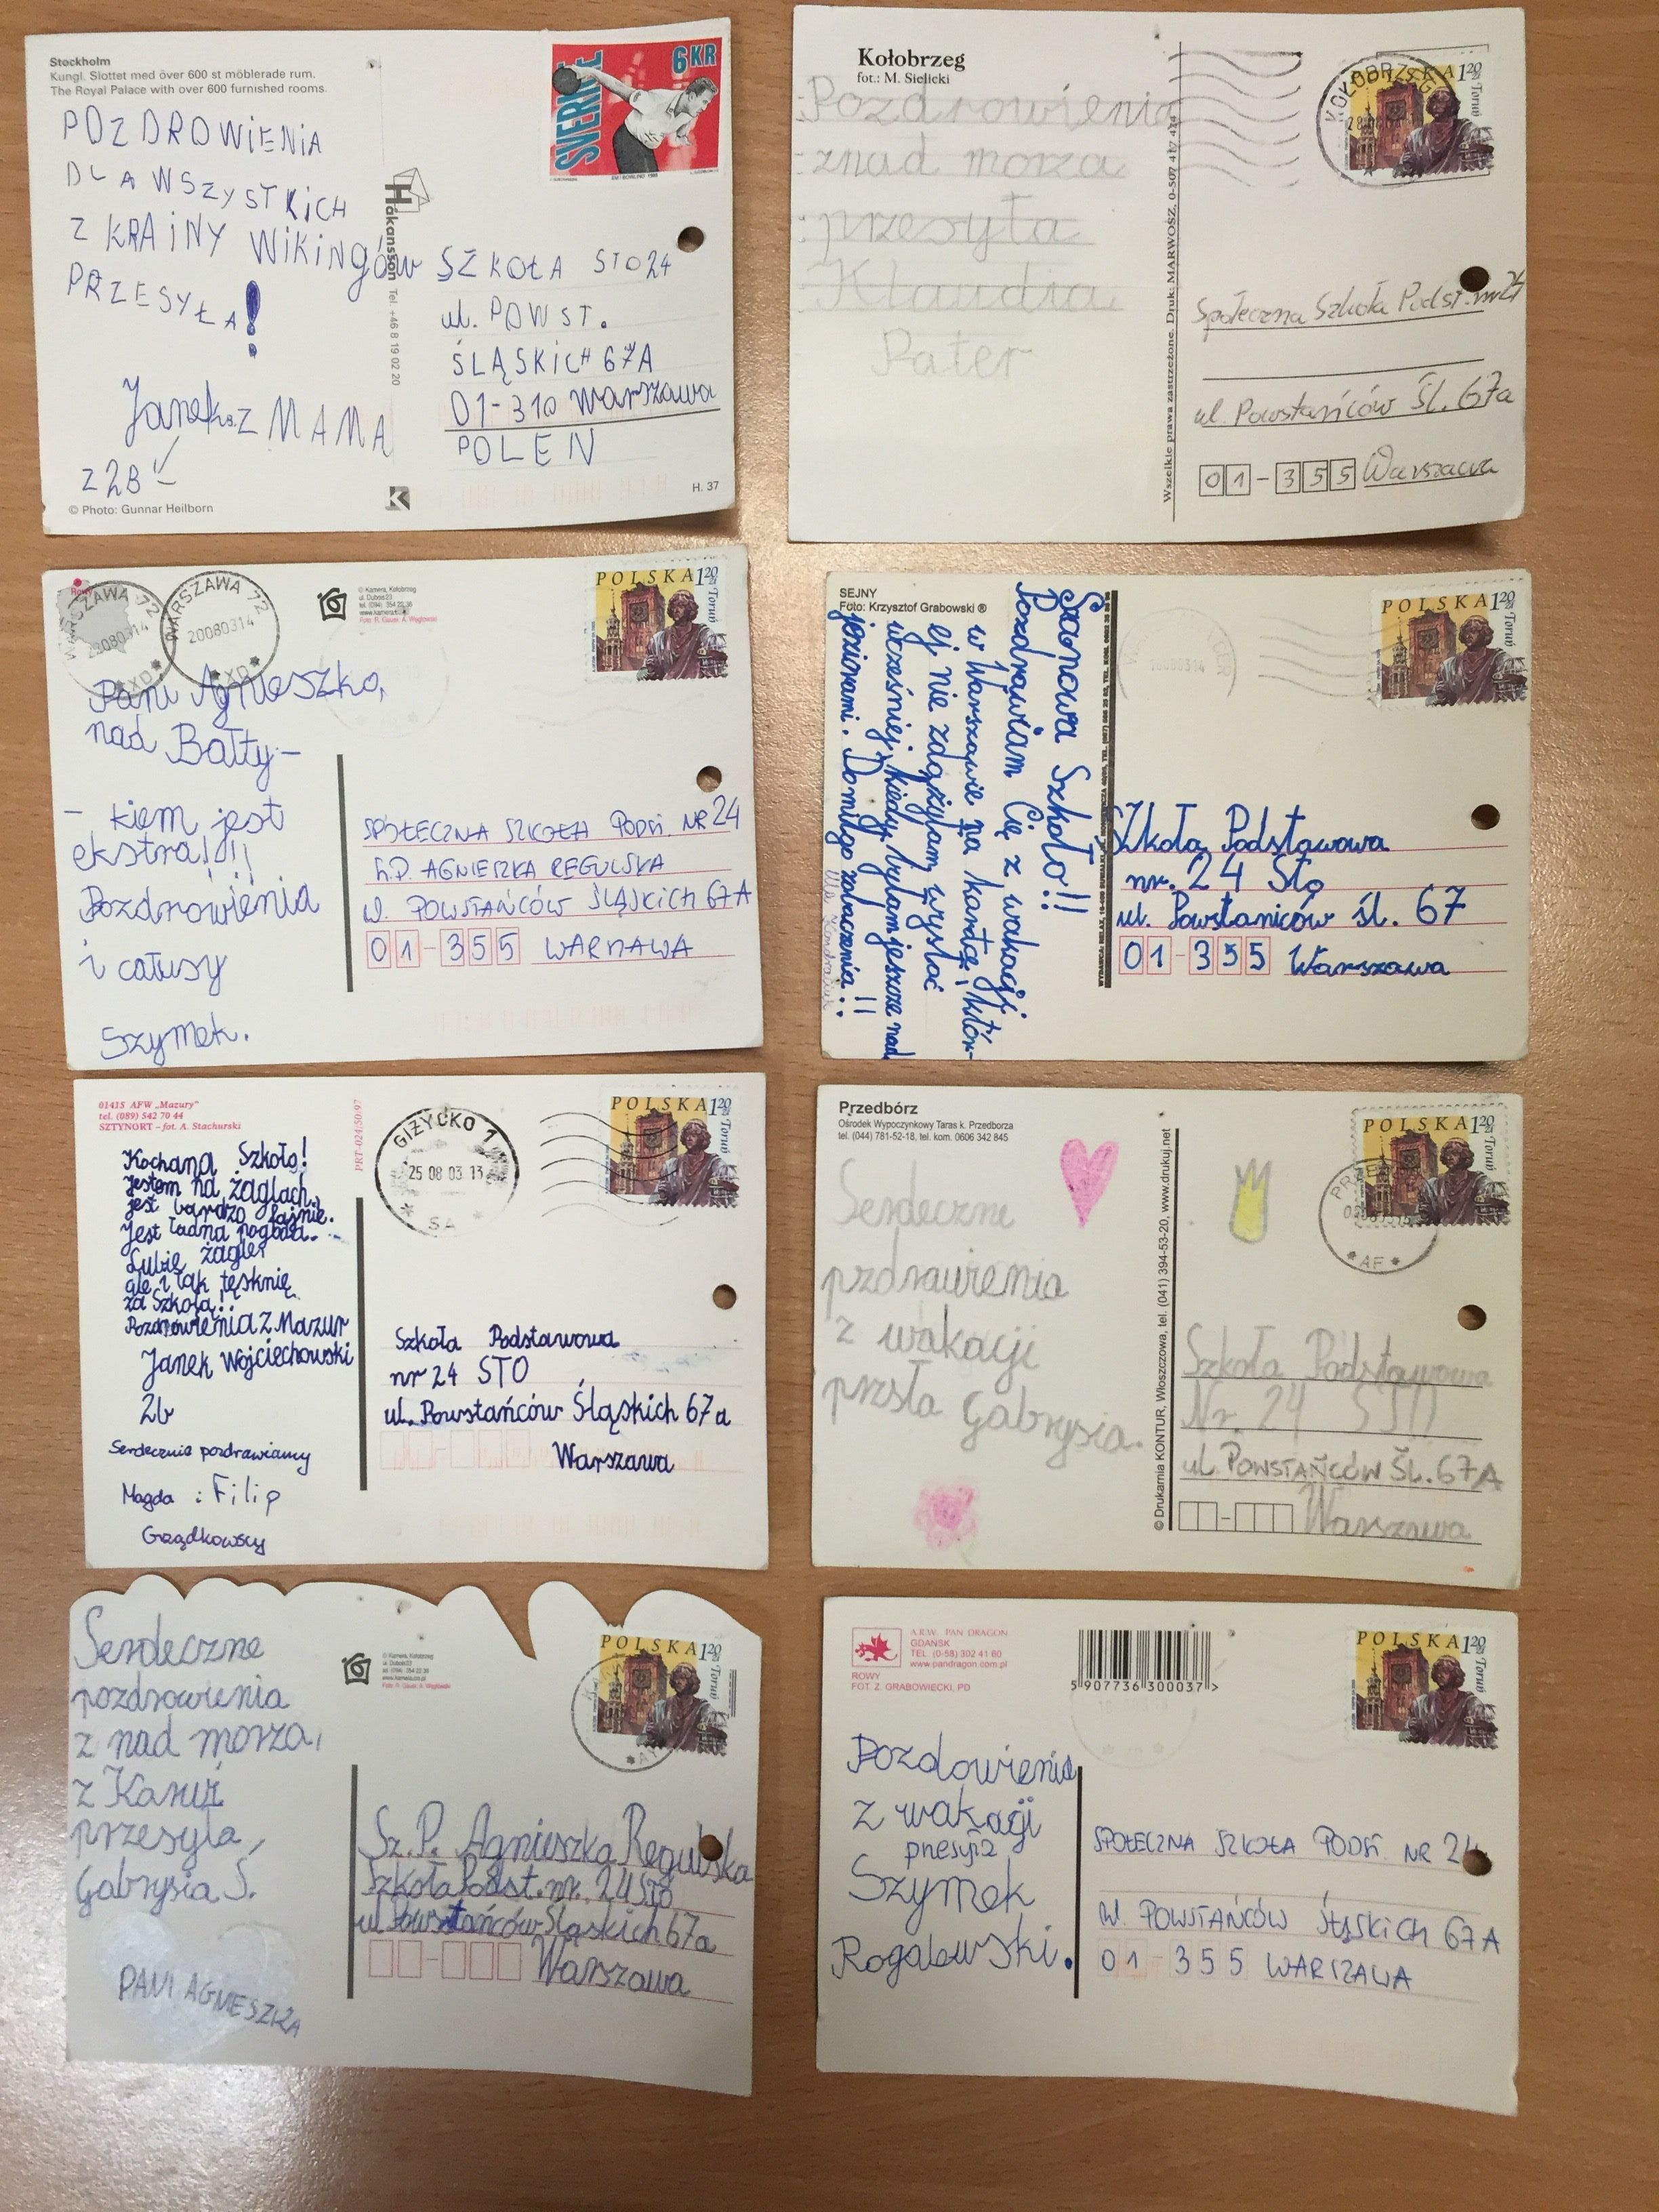 Stockholm
Kungl. Slottet med över 600 st möblerade rum.
The Royal Palace with over 600 furnished rooms.
SVERIGE
6KR
POZDROWiENiA
DLA WSZYSTKiCH
Z KRAiNY WiKiNGóW
PRZESYŁA!
Janek z MAMĄ
z 2B
© Photo: Gunnar Heilborn
Håkansson Tel. +46 8 19 02 20
SZKOŁA STO 24
ul. POWST.
ŚLĄSKiCH 67A
01-310 Warszawa
POLEN
H. 37
Kołobrzeg
fot.: M. Sielicki
Pozdrowienia
znad morza
przesyła
Klaudia
Pater
Wszelkie prawa zastrzeżone. Druk: MARWOSZ, 0-507 417 414
KOŁOBRZEG
POLSKA 120 ZŁ
Toruń
Społeczna Szkoła Podst. nr 24
ul. Powstańców Śl. 67a
01-355 Warszawa
Rowy
WARSZAWA 72
20080314
XD
WARSZAWA 72
20080314
XD
© Kamera, Kołobrzeg
POLSKA 120 ZŁ
Toruń
Pani Agnieszko,
nad Bałty-
- kiem jest
ekstra!!!
Pozdrowienia
i całusy
Szymek.
SPOŁECZNA SZKOŁA PODST. NR 24
Sz.P. AGNIESZKA REGULSKA
ul. POWSTAŃCÓW ŚLĄSKICH 67A
01-355 WARSZAWA
SEJNY
Foto: Krzysztof Grabowski ®
Szanowa Szkoło!!
Pozdrawiam Cię z wakacji
w Warszawie na kartce, któr-
ej nie zdążyłam wysłać
wcześniej, kiedy byłam jeszcze nad
jeziorami. Do miłego zobaczenia!!
POLSKA 120 ZŁ
Toruń
Szkoła Podstawowa
nr. 24 Sto
ul. Powstaniców śl. 67
01-355 Warszawa
0141S AFW „Mazury”
tel. (089) 542 70 44
SZTYNORT – fot. A. Stachurski
PRT-024/50/97
GIŻYCKO 1
25 08 03 13
SA
POLSKA 120 ZŁ
Toruń
Kochana Szkoło!
Jestem na żaglach.
jest bardzo fajnie.
Jest ładna pogoda.
Lubię żagle
ale i tak tęsknię
za Szkołą!
Pozdrowienia z Mazur
Janek Wojciechowski
2b
Serdecznie pozdrawiamy
Magda i Filip
Grządkowscy
Szkoła Podstawowa
nr 24 STO
ul. Powstańców Śląskich 67a
Warszawa
Przedbórz
Ośrodek Wypoczynkowy Taras k. Przedborza
tel. (044) 781-52-18, tel. kom. 0606 342 845
Serdeczne
pzdrawienia
z wakacji
przsła Gabrysia.
© Drukarnia KONTUR, Włoszczowa, tel. (041) 394-53-20, www.drukuj.net
AF
POLSKA 120 ZŁ
Toruń
Szkoła Podstawowa
Nr. 24
ul. POWSTAŃCÓW ŚL. 67A
Warszawa
Serdeczne
pozdrowienia
z nad morza,
z Karwi
przesyła,
Gabrysia Ś.
PANI AGNIESZKA
POLSKA 120 ZŁ
Toruń
Sz.P. Agnieszka Regulska
Szkoła Podst. nr. 24 STO
ul Powstańców Śląskich 67a
Warszawa
A.R.W. PAN DRAGON
GDAŃSK
TEL. (0-58) 302 41 60
www.pandragon.com.pl
ROWY
FOT. Z. GRABOWIECKI, PD
5 907736 300037 >
POLSKA 120 ZŁ
Toruń
Pozdowienia
z wakagi
przesyła
Szymek
Rogalewski.
SPOŁECZNA SZKOŁA PODST. NR 24
ul. POWSTAŃCÓW ŚLĄSKICH 67A
01 355 WARSZAWA